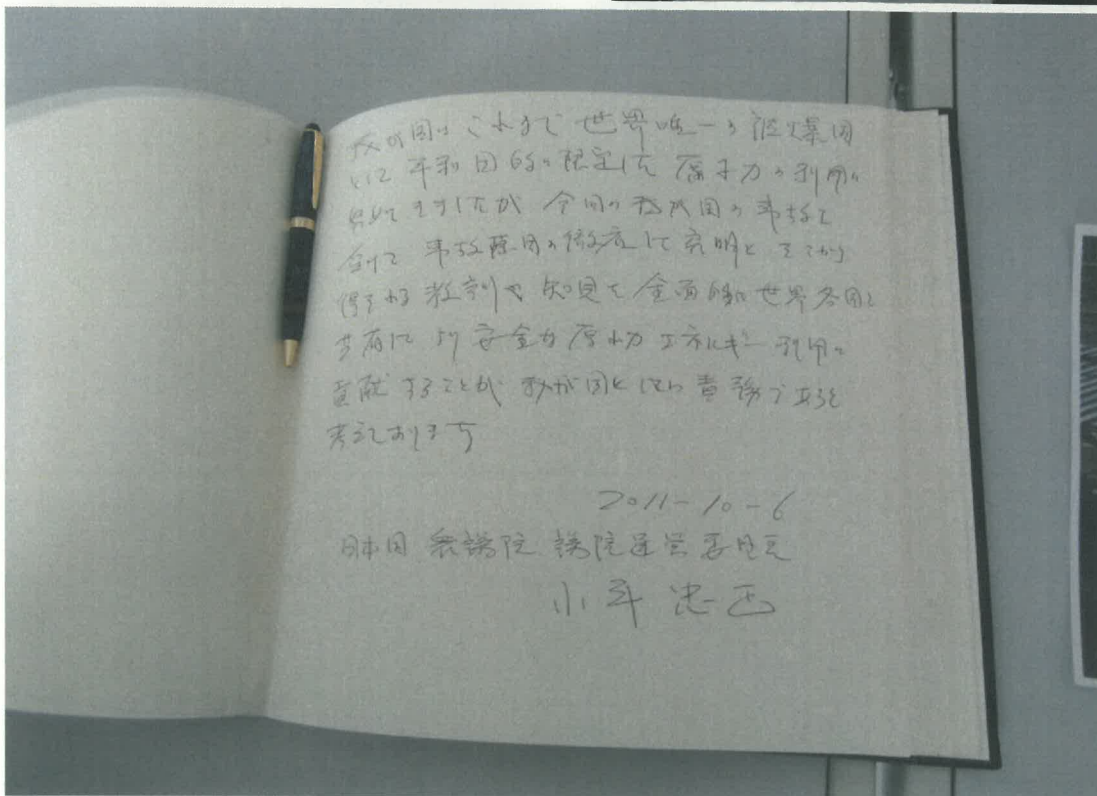 我が国はこれまで 世界唯一の被爆国
として 平和目的に限定した 原子力の利用に
努めてきましたが 今回の我が国の事故に
事故原因の徹底した究明と そこから
得られる教訓や 知見を 全面的に世界各国と
共有し より安全な原子力エネルギー利用に
貢献することが 我が国としての責務であると
考えております
2011-10-6
日本国 衆議院 議院運営委員長
小平 忠正